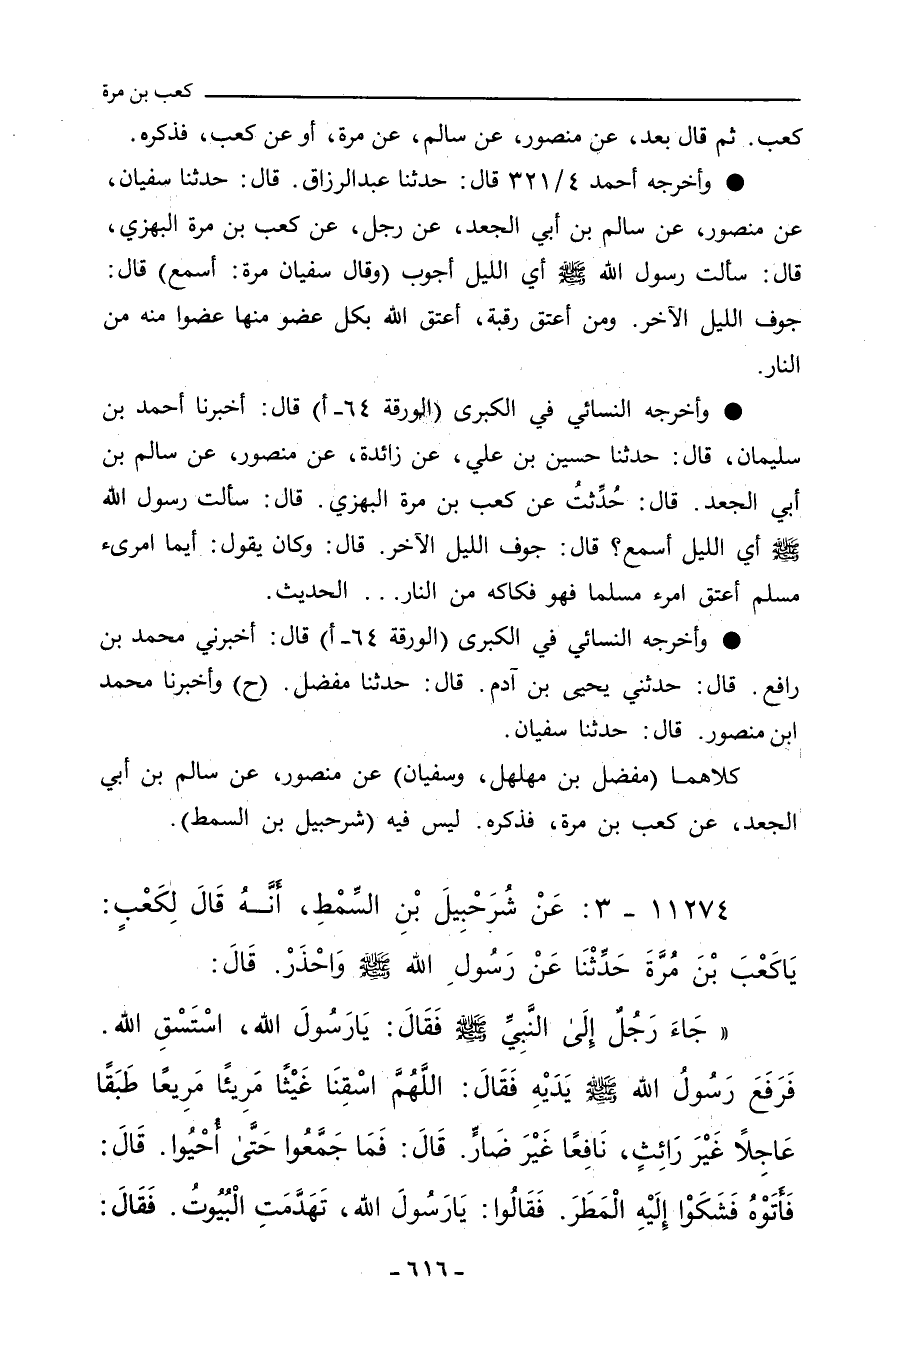 كعب بن مرة
كعب. ثم قال بعد، عن منصور، عن سالم، عن مرة، أو عن كعب، فذكره.
● وأخرجه أحمد ٣٢١/٤ قال: حدثنا عبدالرزاق. قال: حدثنا سفيان،
عن منصور، عن سالم بن أبي الجعد، عن رجل، عن كعب بن مرة البهزي،
قال: سألت رسول الله ﷺ أي الليل أجوب (وقال سفيان مرة: أسمع) قال:
جوف الليل الآخر. ومن أعتق رقبة، أعتق الله بكل عضو منها عضوا منه من
النار.
● وأخرجه النسائي في الكبرى (الورقة ٦٤ـ أ) قال: أخبرنا أحمد بن
سليمان، قال: حدثنا حسين بن علي، عن زائدة، عن منصور، عن سالم بن
أبي الجعد. قال: حُدِّثتُ عن كعب بن مرة البهزي. قال: سألت رسول الله
ﷺ أي الليل أسمع؟ قال: جوف الليل الآخر. قال: وكان يقول: أيما امرىء
مسلم أعتق امرء مسلما فهو فكاكه من النار... الحديث.
● وأخرجه النسائي في الكبرى (الورقة ٦٤ـ أ) قال: أخبرني محمد بن
رافع. قال: حدثني يحيى بن آدم. قال: حدثنا مفضل. (ح) وأخبرنا محمد
ابن منصور. قال: حدثنا سفيان.
كلاهما (مفضل بن مهلهل، وسفيان) عن منصور، عن سالم بن أبي
الجعد، عن كعب بن مرة، فذكره. ليس فيه (شرحبيل بن السمط).
١١٢٧٤ - ٣: عَنْ شُرَحْبِيلَ بْنِ السِّمْطِ، أَنَّـهُ قَالَ لِكَعْبٍ:
يَاكَعْبَ بْنَ مُرَّةَ حَدِّثْنَا عَنْ رَسُولِ الله ﷺ وَاحْذَرْ. قَالَ:
« جَاءَ رَجُلٌ إِلَىٰ النَّبِيِّ ﷺ فَقَالَ: يَارَسُولَ الله، اسْتَسْقِ الله.
فَرَفَعَ رَسُولُ الله ﷺ يَدَيْهِ فَقَالَ: اللَّهُمَّ اسْقِنَا غَيْثًا مَرِيئًا مَرِيعًا طَبَقًا
عَاجِلاً غَيْرَ رَائِثٍ، نَافِعًا غَيْرَ ضَارٍّ. قَالَ: فَمَا جَمَّعُوا حَتَّىٰ أُحْيُوا. قَالَ:
فَأَتَوْهُ فَشَكَوْا إِلَيْهِ الْمَطَرَ. فَقَالُوا: يَارَسُولَ الله، تَهَدَّمَتِ الْبُيُوتُ. فَقَالَ:
- ٦١٦ -